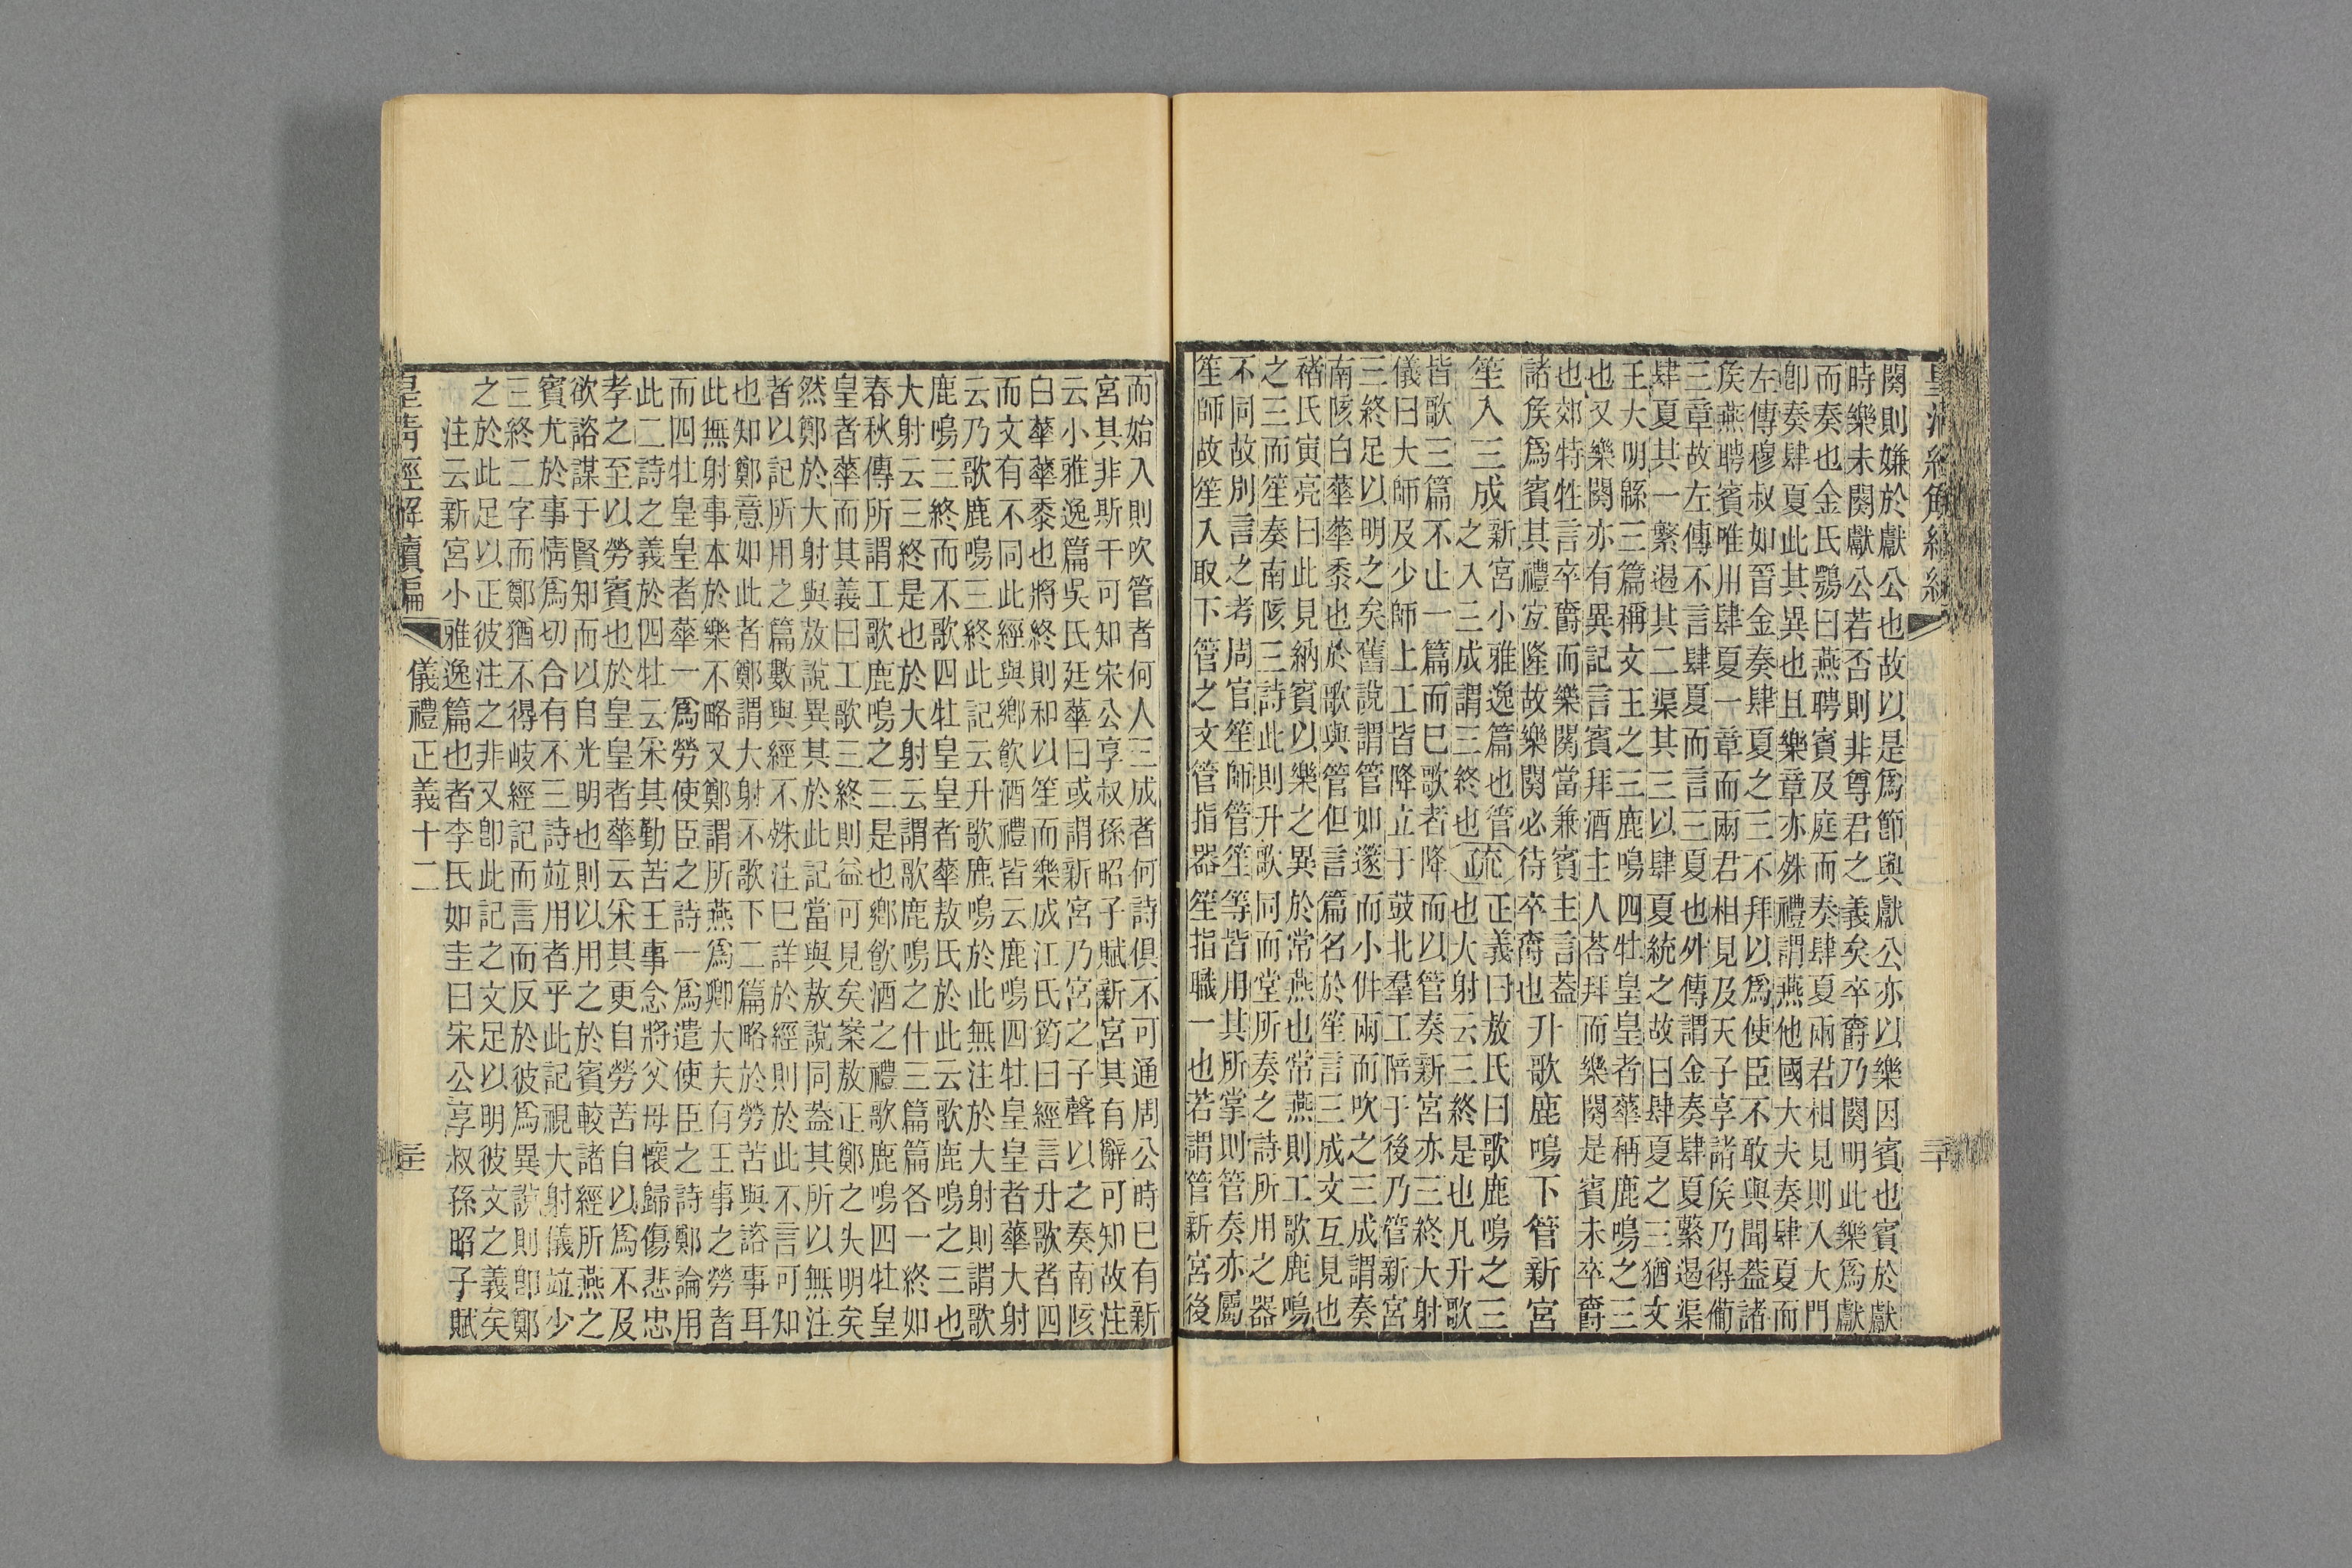 闋則嫌於獻公也故以是爲節與獻公亦以樂因賓也賓於獻
時樂未闋獻公若否則非尊君之義矣卒爵乃闋明此樂爲獻
而奏也金氏鶚曰燕聘賓及庭而奏肆夏兩君相見則入大門
卽奏肆夏此其異也且樂章亦殊禮謂燕他國大夫奏肆夏而
左傳穆叔如晉金奏肆夏之三不拜以爲使臣不敢與聞葢諸
矦燕聘賓唯用肆夏一章而兩君相見及天子享諸矦乃得備
三章故左傳不言肆夏而言三夏也外傳謂金奏肆夏蘩遏渠
肆夏其一蘩遏其二渠其三以肆夏統之故曰肆夏之三猶文
王大明緜三篇稱文王之三鹿鳴四牡皇皇者華稱鹿鳴之三
也又樂闋亦有異記言賓拜酒主人荅拜而樂闋是賓未卒爵
也郊特牲言卒爵而樂闋當兼賓主言葢
諸矦爲賓其禮宐隆故樂闋必待卒爵也 升歌鹿鳴下管新宮
笙入三成 新宮小雅逸篇也管
之入三成謂三終也 疏正 正義曰敖氏曰歌鹿鳴之三
也大射云三終是也凡升歌
皆歌三篇不止一篇而巳歌者降而以管奏新宮亦三終大射
儀曰大師及少師上工皆降立于鼓北羣工陪于後乃管新宮
三終足以明之矣舊說謂管如篴而小併兩而吹之三成謂奏
南陔白華華黍也於歌與管但言篇名於笙言三成文互見也
褚氏寅亮曰此見納賓以樂之異於常燕也常燕則工歌鹿鳴
之三而笙奏南陔三詩此則升歌同而堂所奏之詩所用之器
不同故別言之考周官笙師管笙等皆用其所掌則管奏亦屬
笙師故笙入取下管之文管指器笙指職一也若謂管新宮後
三十
而始入則吹管者何人三成者何詩俱不可通周公時巳有新
宮其非斯干可知宋公享叔孫昭子賦新宮其有辭可知故注
云小雅逸篇吳氏廷華曰或謂新宮乃宮之子聲以之奏南陔
白華華黍也將終則和以笙而樂成江氏筠曰經言升歌者四
而文有不同此經與鄉飮酒禮皆云鹿鳴四牡皇皇者華大射
云乃歌鹿鳴三終此記云升歌鹿鳴於此無注於大射則謂歌
鹿鳴三終而不歌四牡皇皇者華敖氏於此云歌鹿鳴之三也
大射云三終是也於大射云謂歌鹿鳴之什三篇篇各一終如
春秋傳所謂工歌鹿鳴之三是也鄉飮酒之禮歌鹿鳴四牡皇
皇者華而其義曰工歌三終則益可見矣案敖正鄭之失明矣
然鄭於大射與敖說異其於此記當與敖說同葢其所以無注
者以記所用之篇數與經不殊注巳詳於經則於此不言可知
也知鄭意如此者鄭謂大射不歌下二篇略於勞苦與諮事耳
此無射事本於樂不略又鄭謂所燕爲卿大夫有王事之勞者
而四牡皇皇者華一爲勞使臣之詩一爲遣使臣之詩鄭論用
此二詩之義於四牡云采其勤苦王事念將父母懷歸傷悲忠
孝之至以勞賓也於皇皇者華云采其更自勞苦自以爲不及
欲諮謀于賢知而以自光明也則以用之於賓較諸經所燕之
賓尤於事情爲切合有不三詩竝用者乎此記視大射儀竝少
三終二字而鄭猶不得岐經記而言而反於彼爲異說則卽鄭
之於此足以正彼注之非又卽此記之文足以明彼文之義矣
注云新宮小雅逸篇也者李氏如圭曰宋公享叔孫昭子賦
皇清經解續編 儀禮正義十二